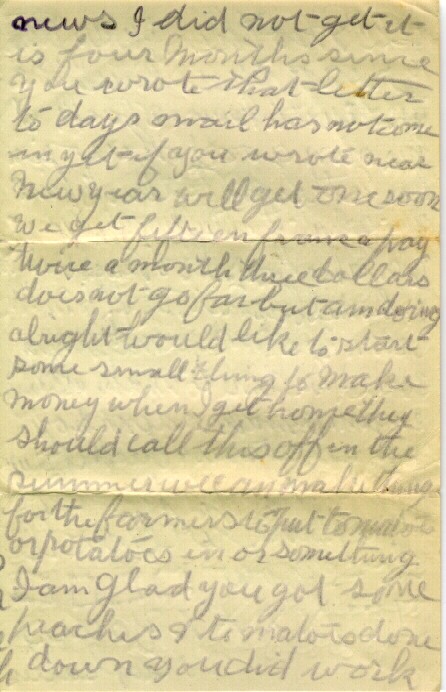 news I did not get it
is four months since
you wrote that letter
to days mail has not come
in yet if you wrote near
New year will get one soon
we get fifteen franc a pay
twice a month three dollars
does not go far but am doing
alright would like to start
some small thing to make
money when I get home they
should call this off in the
summer we can make things
for the farmers to put tomatoes
or potatoes in or something
I am glad you got some
peaches & tomatoes done
down you did work